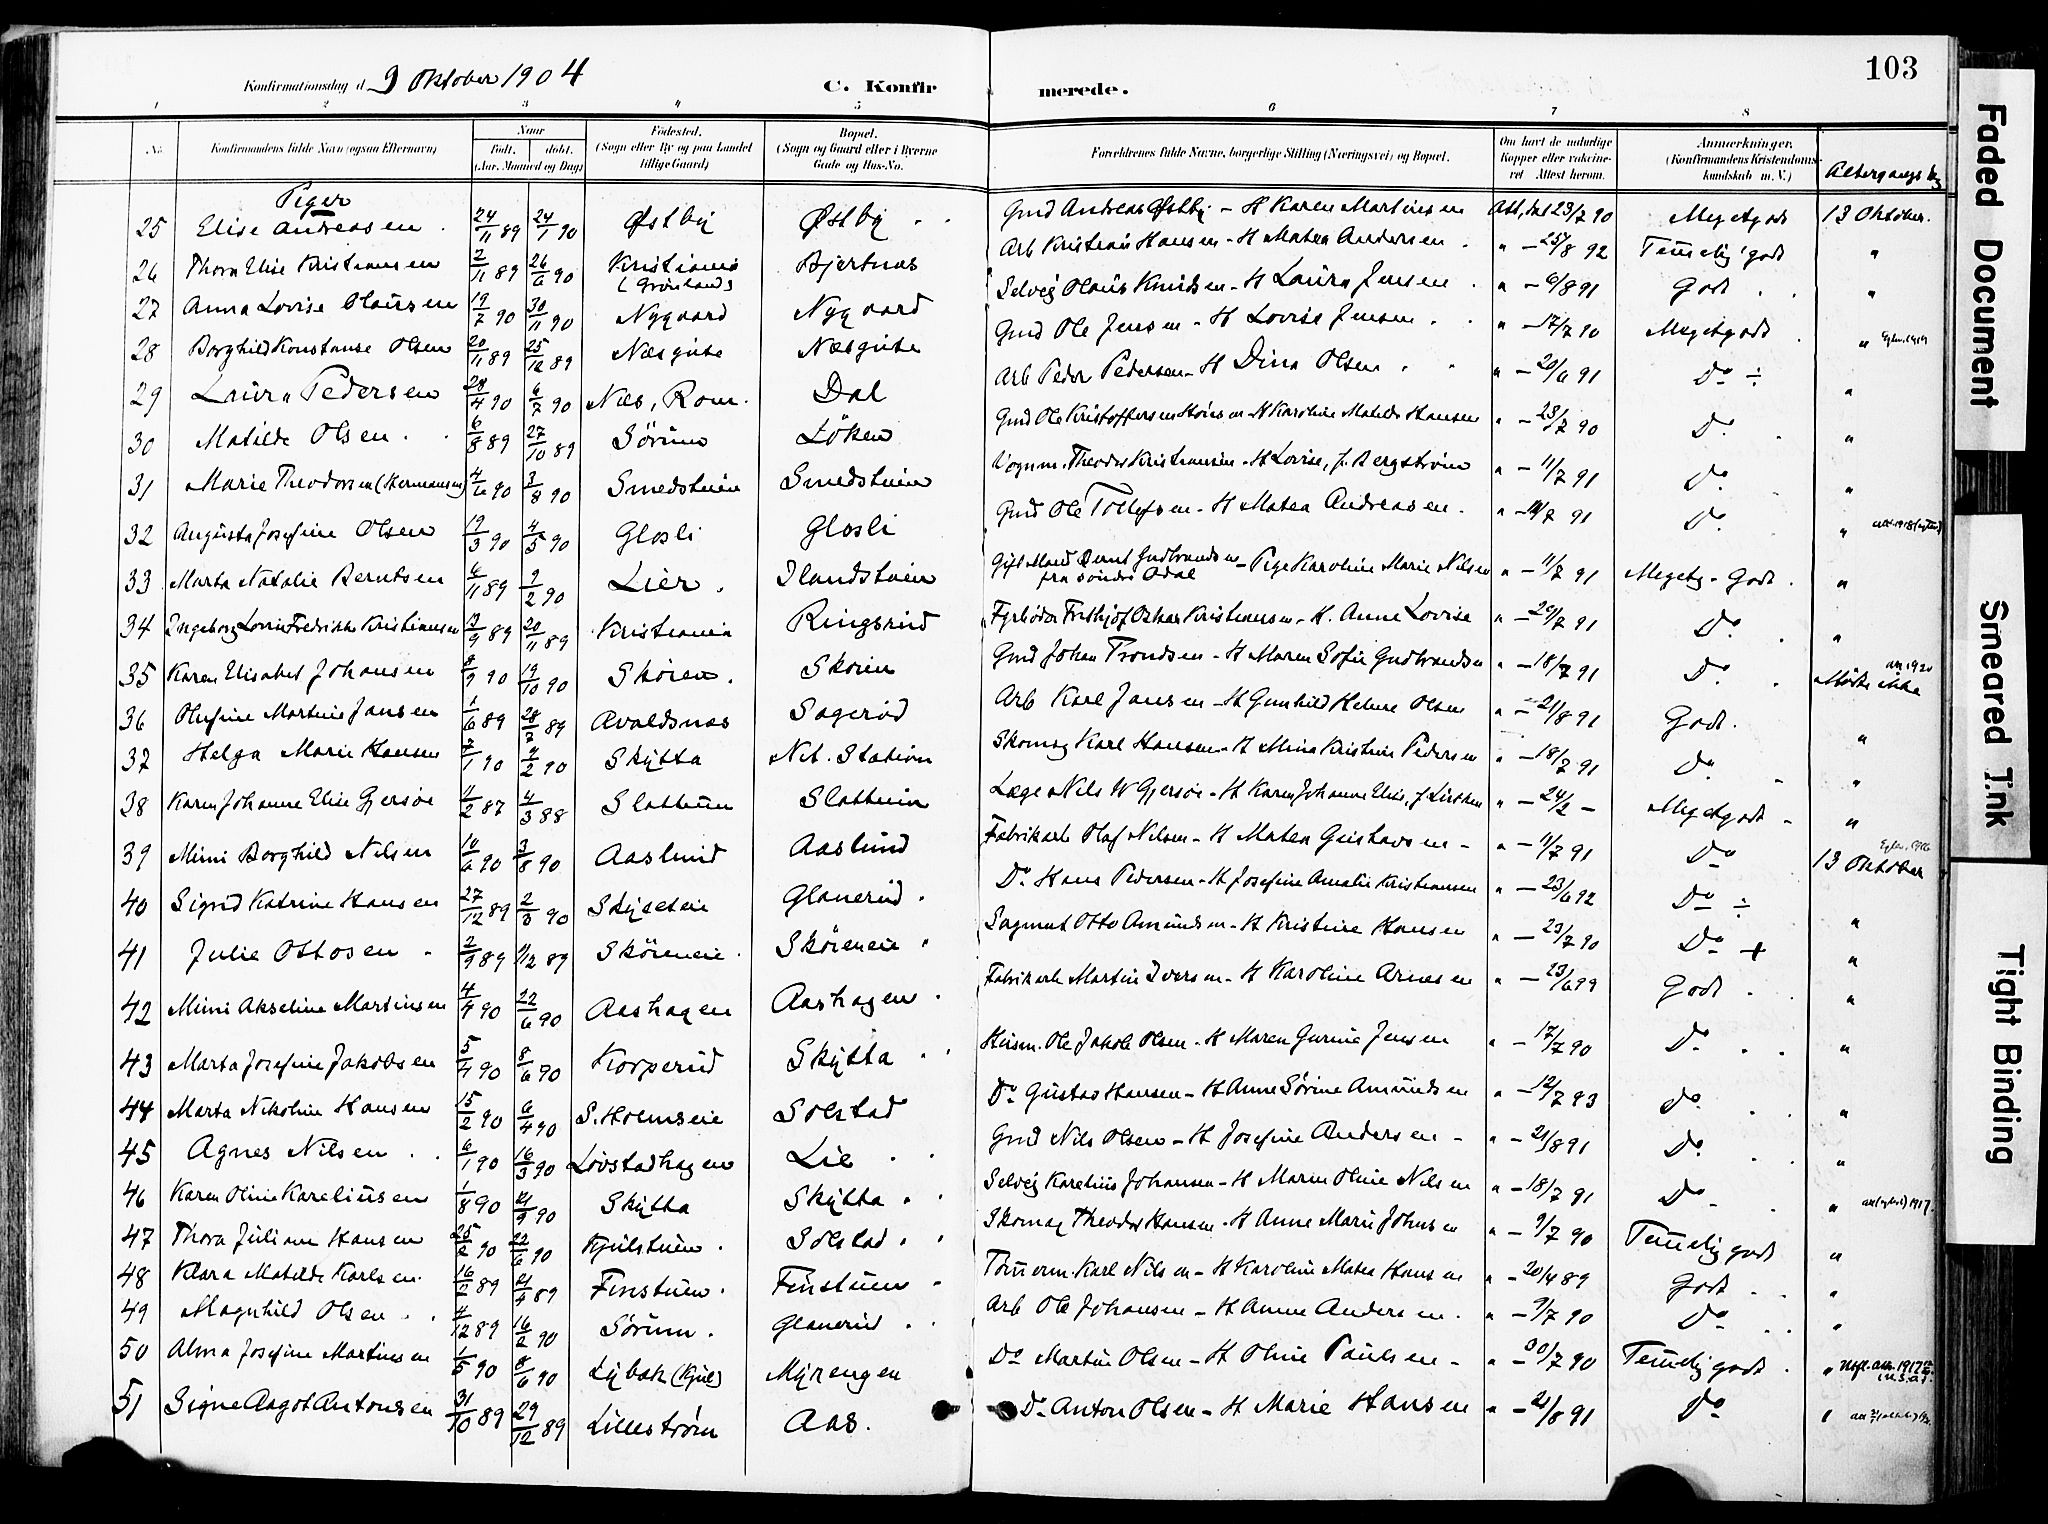 103
Konfirmationsdag d. 9 Oktober 1904
C. Konfirmerede.
1 2 3 4 5 6 7 8
No. Konfirmandens fulde Navn (ogsaa Efternavn) Naar født. døbt. (Aar, Maaned og Dag) Fødested. (Sogn eller By og paa Landet tillige Gaard) Bopæl. (Sogn og Gaard eller i Byerne Gade og Hus-No. Forældrenes fulde Navne, borgerlige Stilling (Næringsvei) og Bopæl. Om havt de naturlige Kopper eller vakcineret Attest herom. Anmærkninger. (Konfirmandens Kristendomskundskab m. V.) Altergangsdag
Piger
25 Elise Andreasen 24/11 89 24/1 90 Østby Østby Gmd Andreas Østby - H Karen Martinsen Att. dat 23/7 90 Megetgodt 13 Oktober.
26 Thora Elise Kristiansen 2/11 89 26/6 90 Kristiania (Grønland) Bjertnæs Arb Kristian Hansen - H Matea Andersen " - 25/8 92 Temelig godt "
27 Anna Lovise Olausen 19/7 90 30/11 90 Nygaard Nygaard Selvej Olaus Knudsen - H Laura Jensen " - 6/8 91 Godt "
28 Borghild Konstanse Olsen 20/11 89 25/12 89 Næsgute Næsgute Gmd Ole Jensen - H Lovise Jensen " - 17/7 90 Megetgodt "
29 Laura Pedersen 28/4 90 6/7 90 Næs, Rom. Dal Arb Peder Pedersen - H Dina Olsen " - 20/6 91 Do ÷ "
30 Matilde Olsen 6/8 89 27/10 89 Sörum Löken Gmd Ole Kristoffersen - H Karoline Matilde Hansen " - 23/7 90 Do "
31 Marie Theodorsen (Hermansen) 4/6 90 3/8 90 Smedstuen Smedstuen Vognm. Theodor Kristiansen - H Lovise, f. Bergström " - 11/7 91 Do "
32 Augusta Josefine Olsen 19/3 90 4/5 90 Glosli Glosli Gmd Ole Tollefsen - H Matea Andreasen " - 11/7 91 Do "
33 Marta Natalie Berntsen 6/11 89 9/2 90 Lier Ilandstuen Gift Mand Bernt Gudbrandsen fra söndre Odal - Pige Karoline Marie Nilsen " - 11/7 91 Megetg - Godt "
34 Ingeborg Lovise Fredrikke Kristiansen 3/9 89 20/11 89 Kristiania Ringsrud Fyrböder Frithjof Oskar Kristiansen - H. Anne Lovise " - 20/7 91 Do "
35 Karen Elisabet Johansen 8/9 90 19/10 90 Skören Skören Gmd Johan Trondsen - H Maren Sofie Gudbrandsen " - 18/7 91 Do Mötte ikke
36 Olufine Martine Jansen 1/6 89 28/7 89 Avaldsnæs Sagerud Arb Karl Jansen - H Gunhild Helene Olsen " - 21/8 91 Godt "
37 Helga Marie Hansen 7/1 90 4/2 90 Skytta Nit. Station Skomag Karl Hansen - H Mina Kristine Pedersen " - 18/7 91 Do "
38 Karen Johanne Elise Gjersöe 11/2 87 4/3 88 Slattum Slattum Læge Nils W Gjersöe - H Karen Johanne Elise, f. " - 24/2 - Megetgodt "
39 Mimi Borghild Nilsen 10/6 90 3/8 90 Aaslund Aaslund Fabrikarb Olaf Nilsen - H Matea Gustavsen " - 11/7 91 Do 13 Oktober
40 Sigrid Katrine Hansen 27/12 89 2/3 90 Skytteie Glanerud Do Hans Pedersen - H Josefine Amalie Kristiansen " - 23/6 92 Do ÷ "
41 Julie Ottosen 2/9 89 1/12 89 Sköreneie Sköreneie Sagmest Otto Amundsen - H Kristine Hansen " - 23/7 90 Do + "
42 Mimi Akseline Martinsen 4/4 90 22/6 90 Aashagen Aashagen Fabrikarb Martin Iversen - H Karoline Arnesen " - 23/6 99 Godt "
43 Marta Josefine Jakobsen 5/4 90 8/6 90 Korperud Skytta Husm. Ole Jakob Olsen - H Maren Gurine Jensen " - 17/7 90 Do "
44 Marta Nikoline Hansen 15/2 90 6/4 90 S. Holmseie Solstad Do Gustav Hansen - H Anne Sörine Amundsen " - 12/7 93 Do "
45 Agnes Nilsen 6/1 90 16/3 90 Lövstadhagen Lie Gmd Nils Olsen - H Josefine Andersen " - 21/8 91 Do "
46 Karen Oline Kareliusen 1/8 90 21/9 90 Skytta Skytta Selvej Karelius Johansen - H Maren Oline Nilsen " - 18/7 91 Do "
47 Thora Juliane Hansen 25/2 90 22/6 90 Kjulstuen Solstad Skomag Theodor Hansen - H Anne Marie Johnsen " - 9/7 90 Temelig godt "
48 Klara Matilde Karlsen 16/2 89 21/4 89 Finstuen Finstuen Tömerm. Karl Nilsen - H Karoline Matea Hansen " - 20/4 89 Godt "
49 Magnhild Olsen 4/12 89 16/2 90 Sörum Glanerud Arb Ole Johansen - H Anne Andersen " - 9/7 90 Do "
50 Alma Josefine Martinsen 1/5 90 8/6 90 Lybæk (Kjul) Myrengen Do Martin Olsen - H Oline Paulsen " - 30/7 90 Temelig godt "
51 Signe Aagot Antonsen 31/10 89 29/12 89 Lilleström Aas. Do Anton Olsen - H Marie Hansen " - 21/8 91 Do
Faded Document
Smeared Ink
Tight Binding